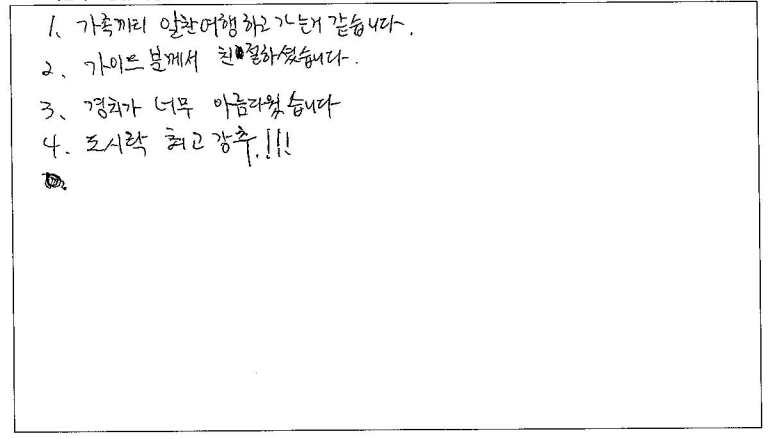 1. 가족끼리 알찬여행하고 가는거 같습니다.
2. 가이드 분께서 친절하셨습니다.
3. 경치가 너무 아름다웠습니다
4. 도시락 최고 강추.!!!